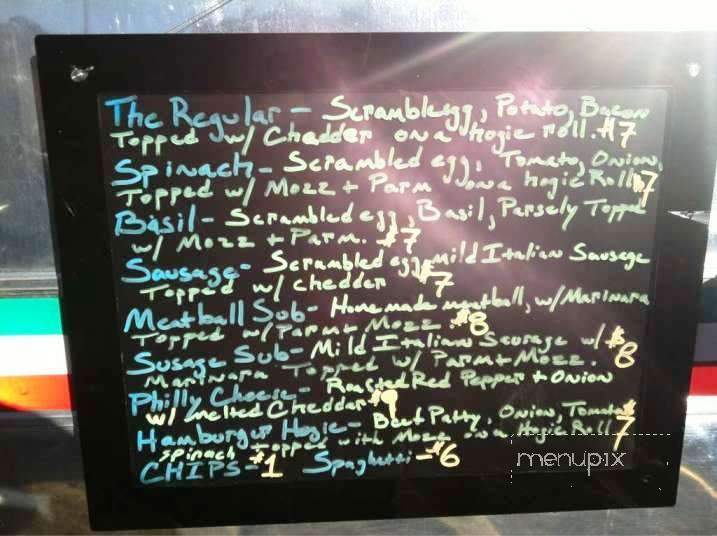 The Regular - Scramble egg, Potato, Bacon
Topped w/ Chedder on a hogie roll. $7
Spinach - Scrambled egg, Tomato, Onion,
Topped w/ Mozz + Parm on a hogie Roll $7
Basil - Scrambled egg, Basil, Parsely Topped
w/ Mozz + Parm. $7
Sausage - Scrambled egg, Mild Italian Sausage
Topped w/ chedder $7
Meatball Sub - Homemade meatball, w/ Marinara
Topped w/ Parm + Mozz $8
Susage Sub - Mild Italian Sausage w/ $8
Marinara Topped w/ Parm + Mozz.
Philly Cheese - Roasted Red Pepper + Onion
w/ melted Cheddar $9
Hamburger Hogie - Beef Patty, Onion, Tomato $7
Spinach Topped with Mozz on a Hogie Roll
CHIPS - $1 Spaghetti - $6
menupix